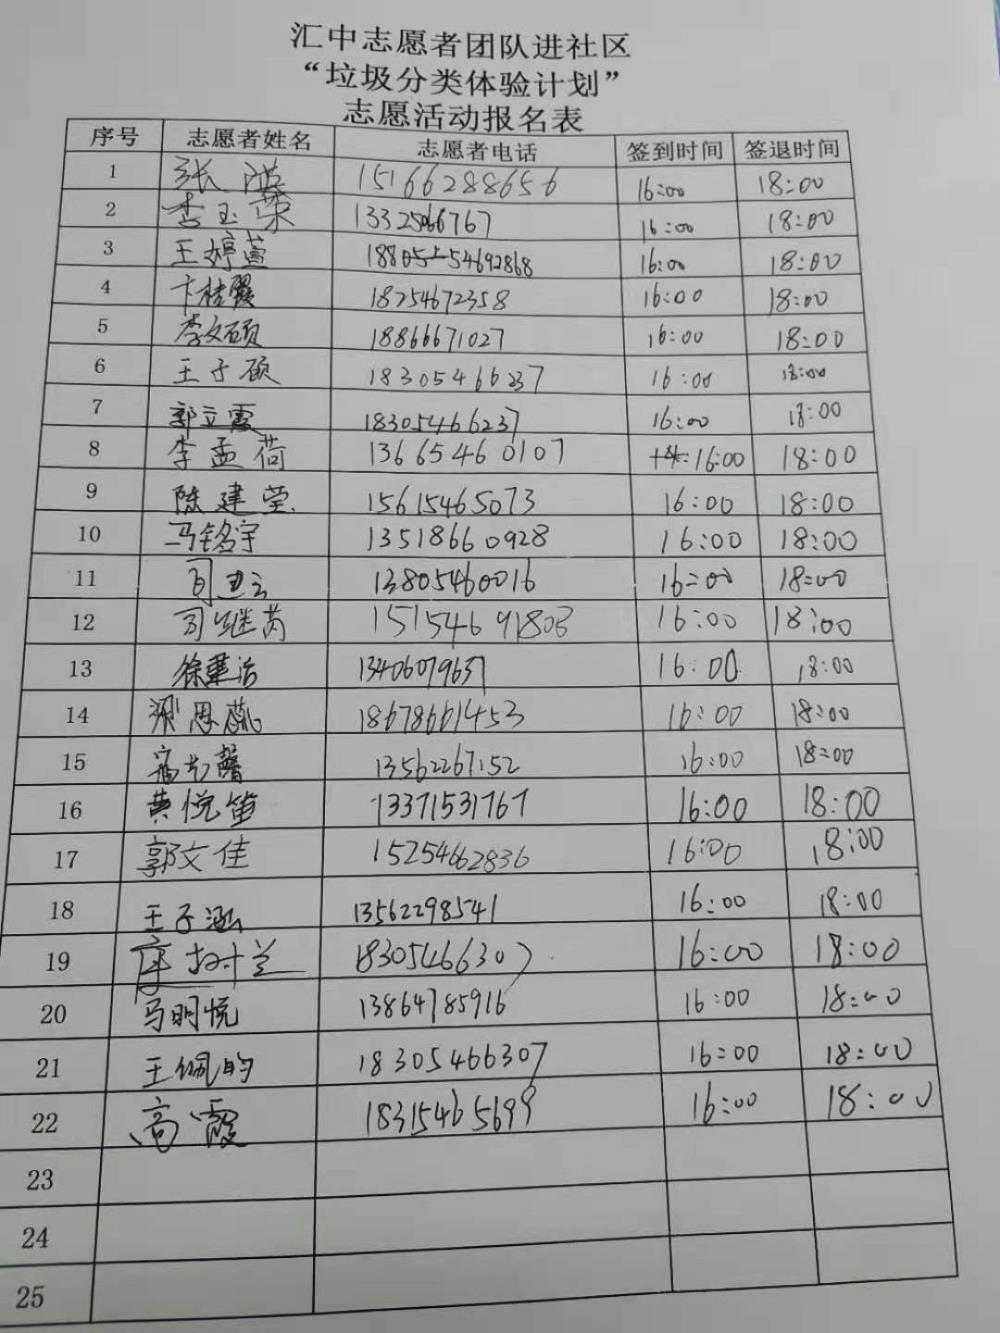 汇中志愿者团队进社区
“垃圾分类体验计划”
志愿活动报名表
序号 志愿者姓名 志愿者电话 签到时间 签退时间
1 张 15166288656 16:00 18:00
2 李玉荣 13325066767 16:00 18:00
3 王婷萱 54692868 16:00 18:00
4 卞桂霞 18254672358 16:00 18:00
5 李文硕 18866671027 16:00 18:00
6 王子硕 18305466237 16:00 18:00
7 郭立霞 18305466237 16:00 18:00
8 李孟荷 13665460107 16:00 18:00
9 陈建莹 15615465073 16:00 18:00
10 马铭宇 13518660928 16:00 18:00
11 司卫云 13805460016 16:00 18:00
12 司继芮 15154691803 16:00 18:00
13 徐建洁 13406079637 16:00 18:00
14 梁思蕊 18678661453 16:00 18:00
15 馨 13562267152 16:00 18:00
16 黄悦笛 13371531767 16:00 18:00
17 郭文佳 15254662836 16:00 18:00
18 王子涵 13562298541 16:00 18:00
19 树兰 18305466307 16:00 18:00
20 马明悦 13864785916 16:00 18:00
21 王佩昀 18305466307 16:00 18:00
22 高霞 18315465699 16:00 18:00
23
24
25